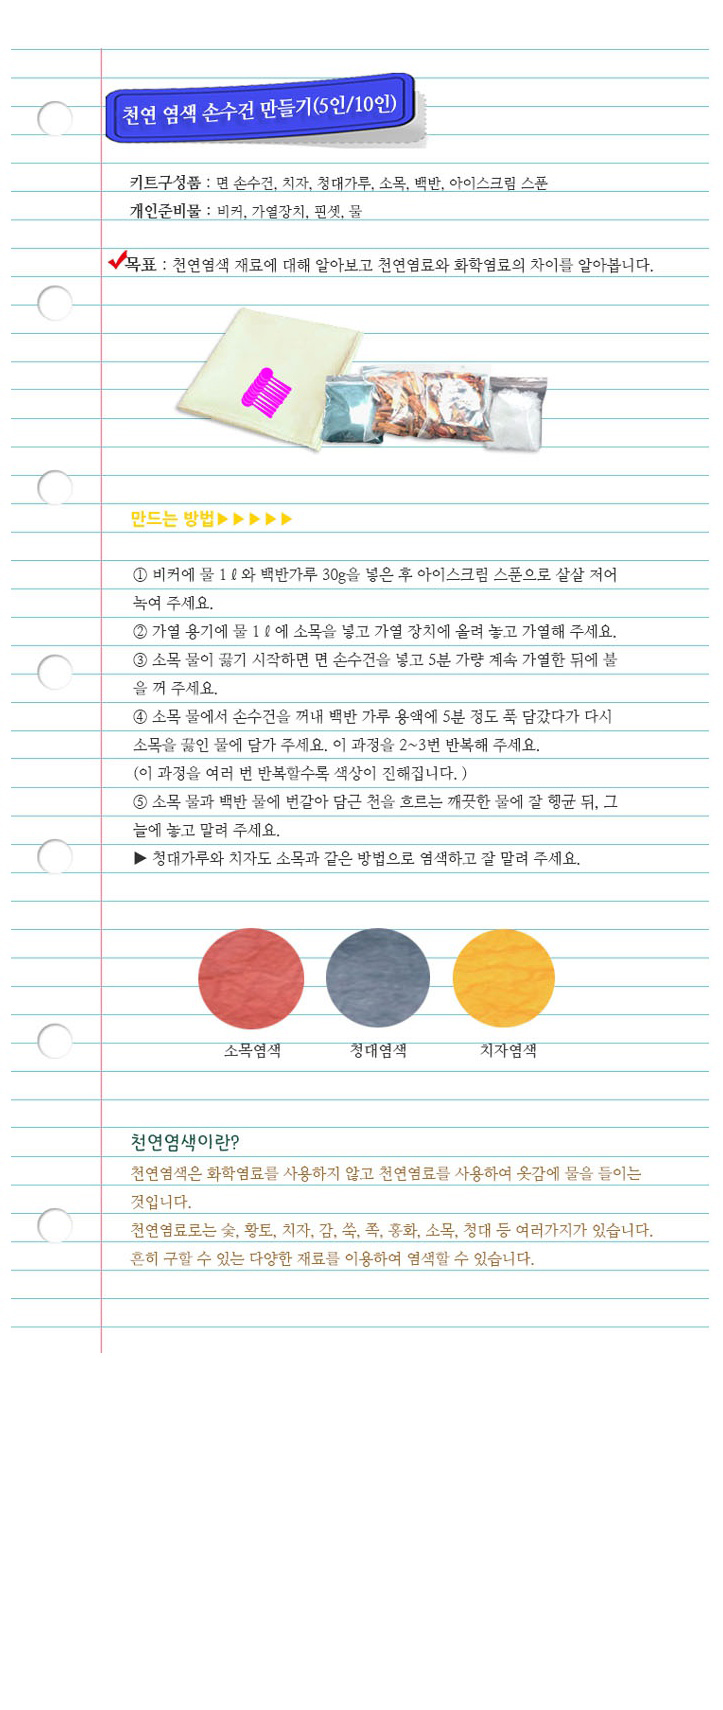 천연 염색 손수건 만들기(5인/10인)
키트구성품 : 면 손수건, 치자, 청대가루, 소목, 백반, 아이스크림 스푼
개인준비물 : 비커, 가열장치, 핀셋, 물
목표 : 천연염색 재료에 대해 알아보고 천연염료와 화학염료의 차이를 알아봅니다.
만드는 방법▶▶▶▶▶
① 비커에 물 1ℓ와 백반가루 30g을 넣은 후 아이스크림 스푼으로 살살 저어
녹여 주세요.
② 가열 용기에 물 1ℓ에 소목을 넣고 가열 장치에 올려 놓고 가열해 주세요.
③ 소목 물이 끓기 시작하면 면 손수건을 넣고 5분 가량 계속 가열한 뒤에 불
을 꺼 주세요.
④ 소목 물에서 손수건을 꺼내 백반 가루 용액에 5분 정도 푹 담갔다가 다시
소목을 끓인 물에 담가 주세요. 이 과정을 2~3번 반복해 주세요.
(이 과정을 여러 번 반복할수록 색상이 진해집니다. )
⑤ 소목 물과 백반 물에 번갈아 담근 천을 흐르는 깨끗한 물에 잘 헹균 뒤, 그
늘에 놓고 말려 주세요.
▶ 청대가루와 치자도 소목과 같은 방법으로 염색하고 잘 말려 주세요.
소목염색 청대염색 치자염색
천연염색이란?
천연염색은 화학염료를 사용하지 않고 천연염료를 사용하여 옷감에 물을 들이는
것입니다.
천연염료로는 숯, 황토, 치자, 감, 쑥, 쪽, 홍화, 소목, 청대 등 여러가지가 있습니다.
흔히 구할 수 있는 다양한 재료를 이용하여 염색할 수 있습니다.